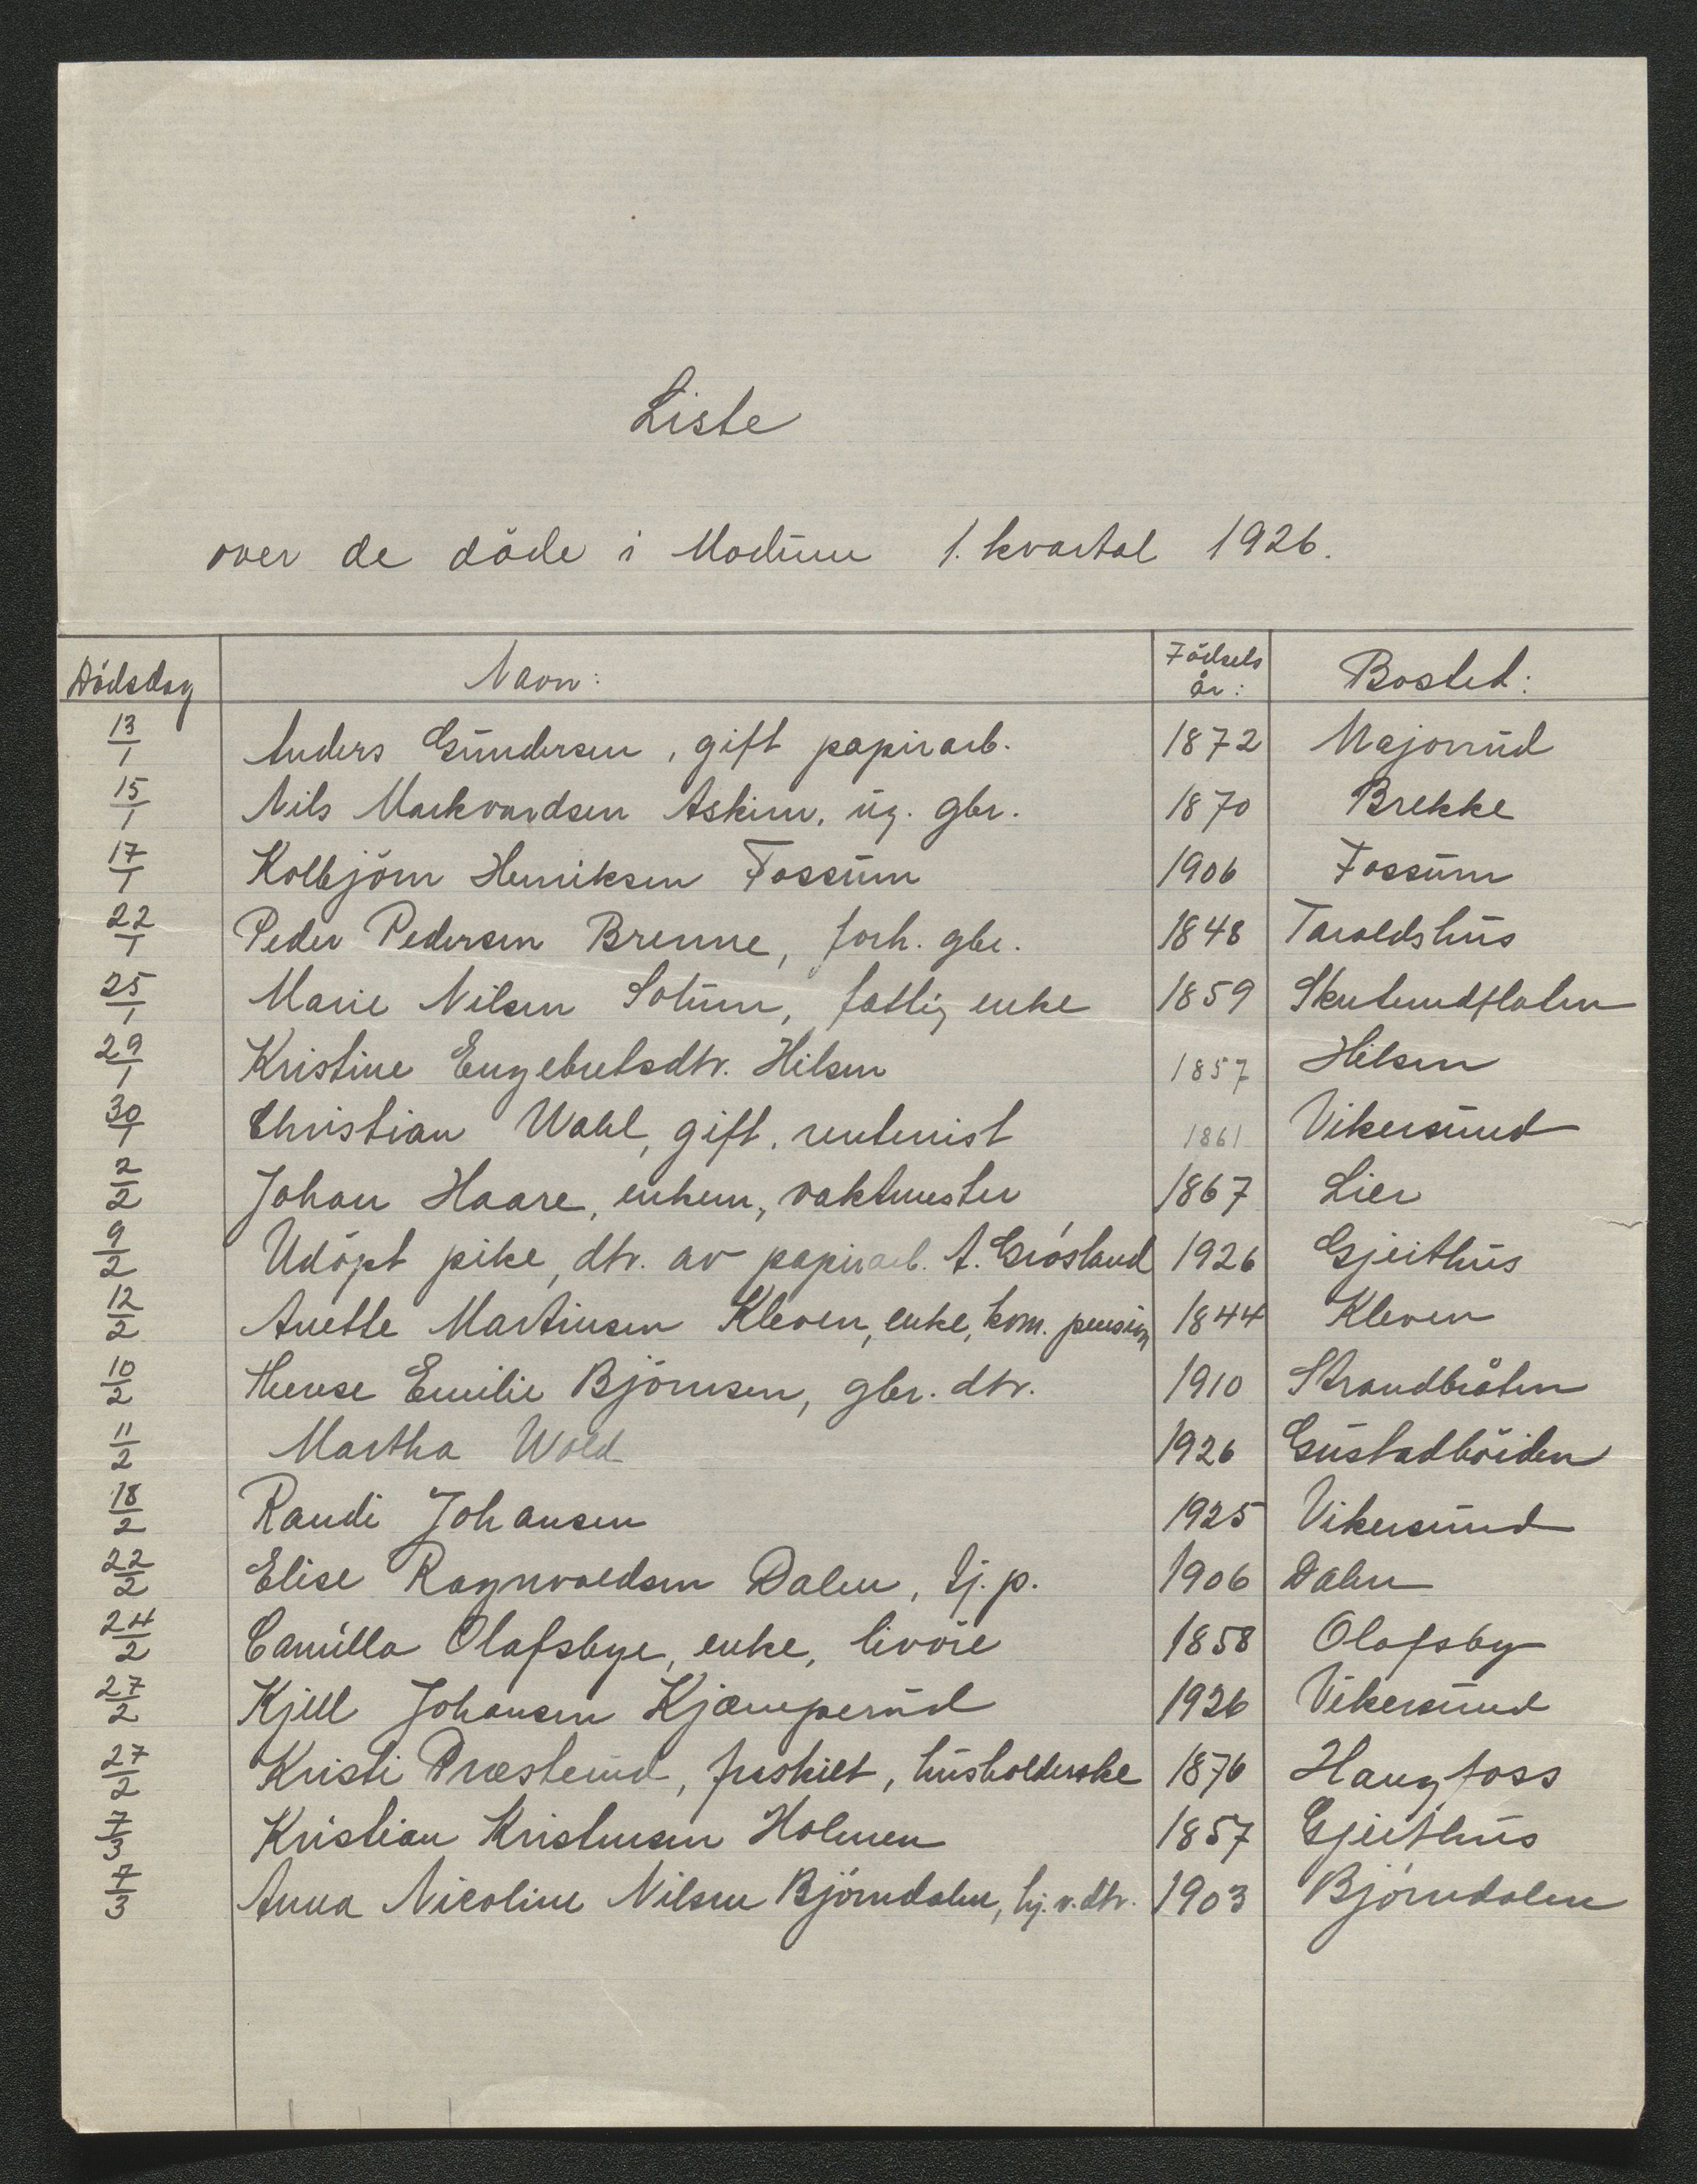 Liste
over de döde i Modum 1. kvartal 1926.
Dödsdag Navn: Födsels år: Bosted:
13/1 Anders Gundersen, gift papirarb. 1872 Majorud
15/1 Nils Markvardsen Askim, ug. gbr. 1870 Brekke
17/1 Kolbjörn Henriksen Fossum 1906 Fossum
22/1 Peder Pedersen Brenne, forh. gbr. 1848 Taraldshus
25/1 Marie Nilsen Solum, fattig enke 1859 Skuterudflaten
29/1 Kristine Engebretsdtr. Hilsen 1857 Hilsen
30/1 Christian Wahl, gift, rentenist 1861 Vikersund
2/2 Johan Haare, enkem, vaktmester 1867 Lier
9/2 Udöpt pike, dtr. av papirarb. A. Grösland 1926 Gjeithus
12/2 Anette Martinsen Kleven, enke, kom. pension 1844 Kleven
10/2 Therese Emilie Björnsen, gbr. dtr. 1910 Strandbråten
11/2 Martha Wold 1926 Gustadhöiden
18/2 Randi Johansen 1925 Vikersund
22/2 Elise Ragnvaldsen Dalen, tj. p. 1906 Dalen
24/2 Camilla Olafsbye, enke, livöre 1858 Olafsby
27/2 Kjell Johansen Kjæmperud 1926 Vikersund
27/2 Kristi Præsterud, fraskilt, husholderske 1876 Haugfoss
7/3 Kristian Kristensen Holmen 1857 Gjeithus
7/3 Anna Nicoline Nilsen Björndalen, hj. v. dtr. 1903 Björndalen